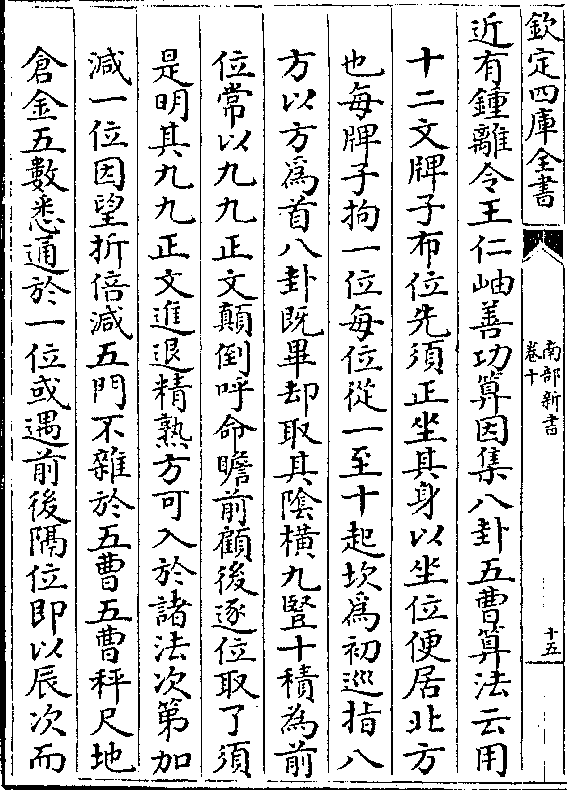 欽定四庫全書
南部新書
卷十
十五
近有鍾離令王仁岫善功算因集八卦五曹算法云用
十二文牌子布位先須正坐其身以坐位便居北方
也每牌子拘一位每位從一至十起坎為初巡指八
方以方為首八卦既畢却取其陰橫九豎十積為前
位常以九九正文顛倒呼命瞻前顧後逐位取了須
是明其九九正文進退精熟方可入於諸法次第加
減一位因望折倍減五門不雜於五曹五曹秤尺地
倉金五數悉通於一位或遇前後隔位即以辰次而